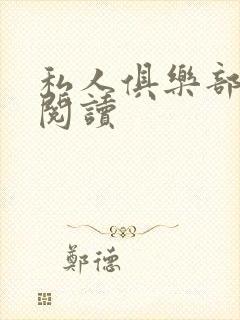 私人俱樂部
閱讀
鄭德